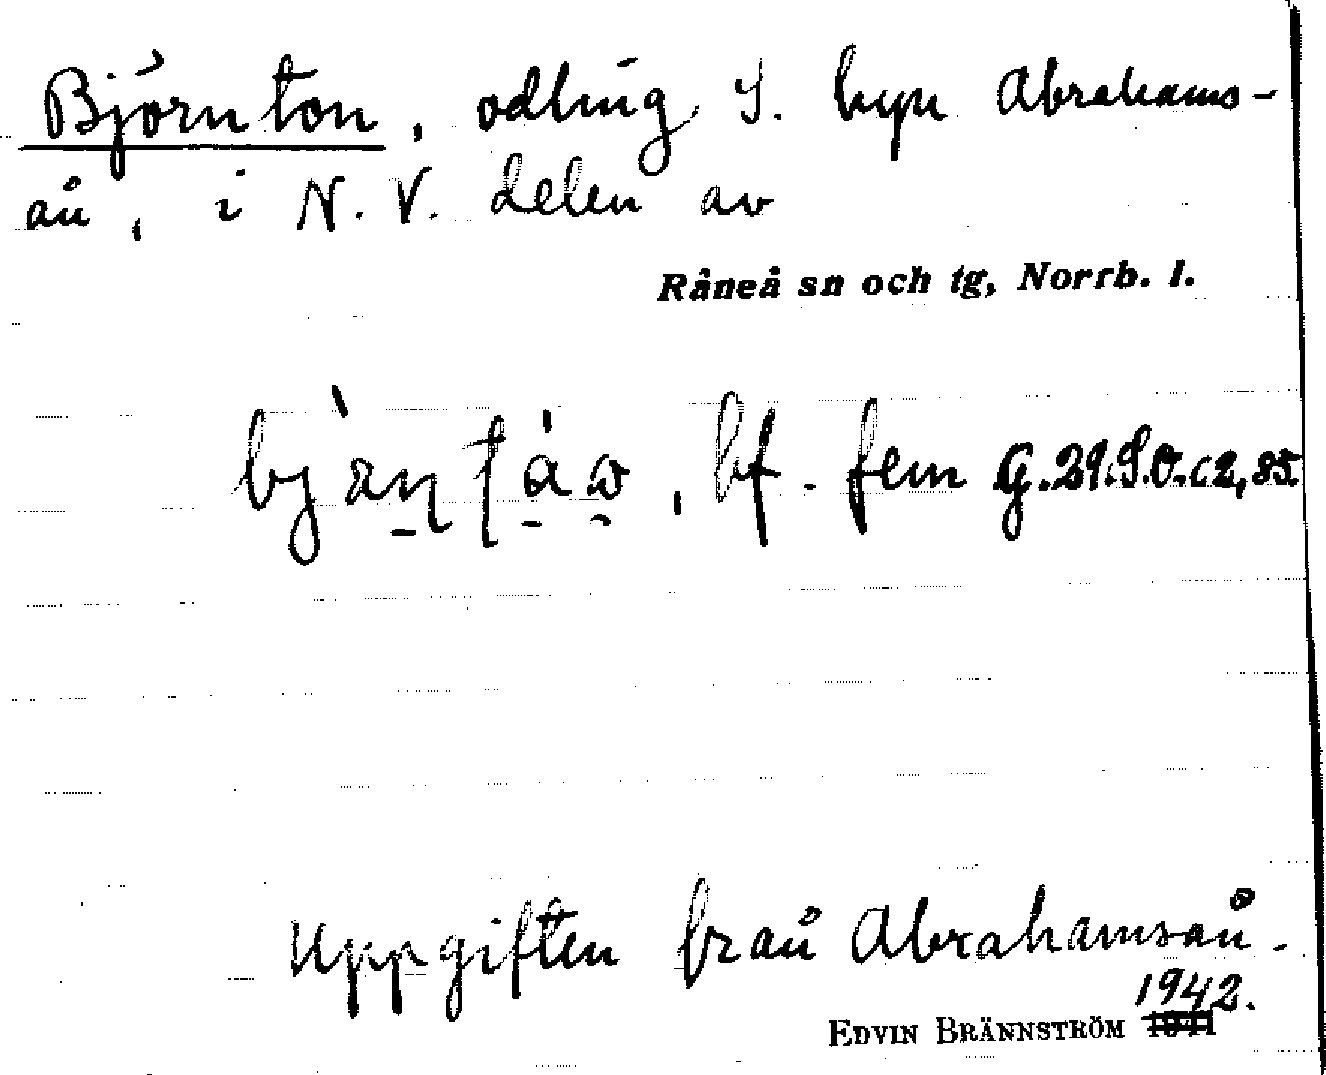 Björnton, odling S. byn Abrahams-
ån, i N.V. delen av
Råneå sn och tg, Norrb. l.
bf. fem G.29.S.O.c2,85.
Uppgiften från Abrahamsån.
1942.
EDVIN BRÄNNSTRÖM 1941